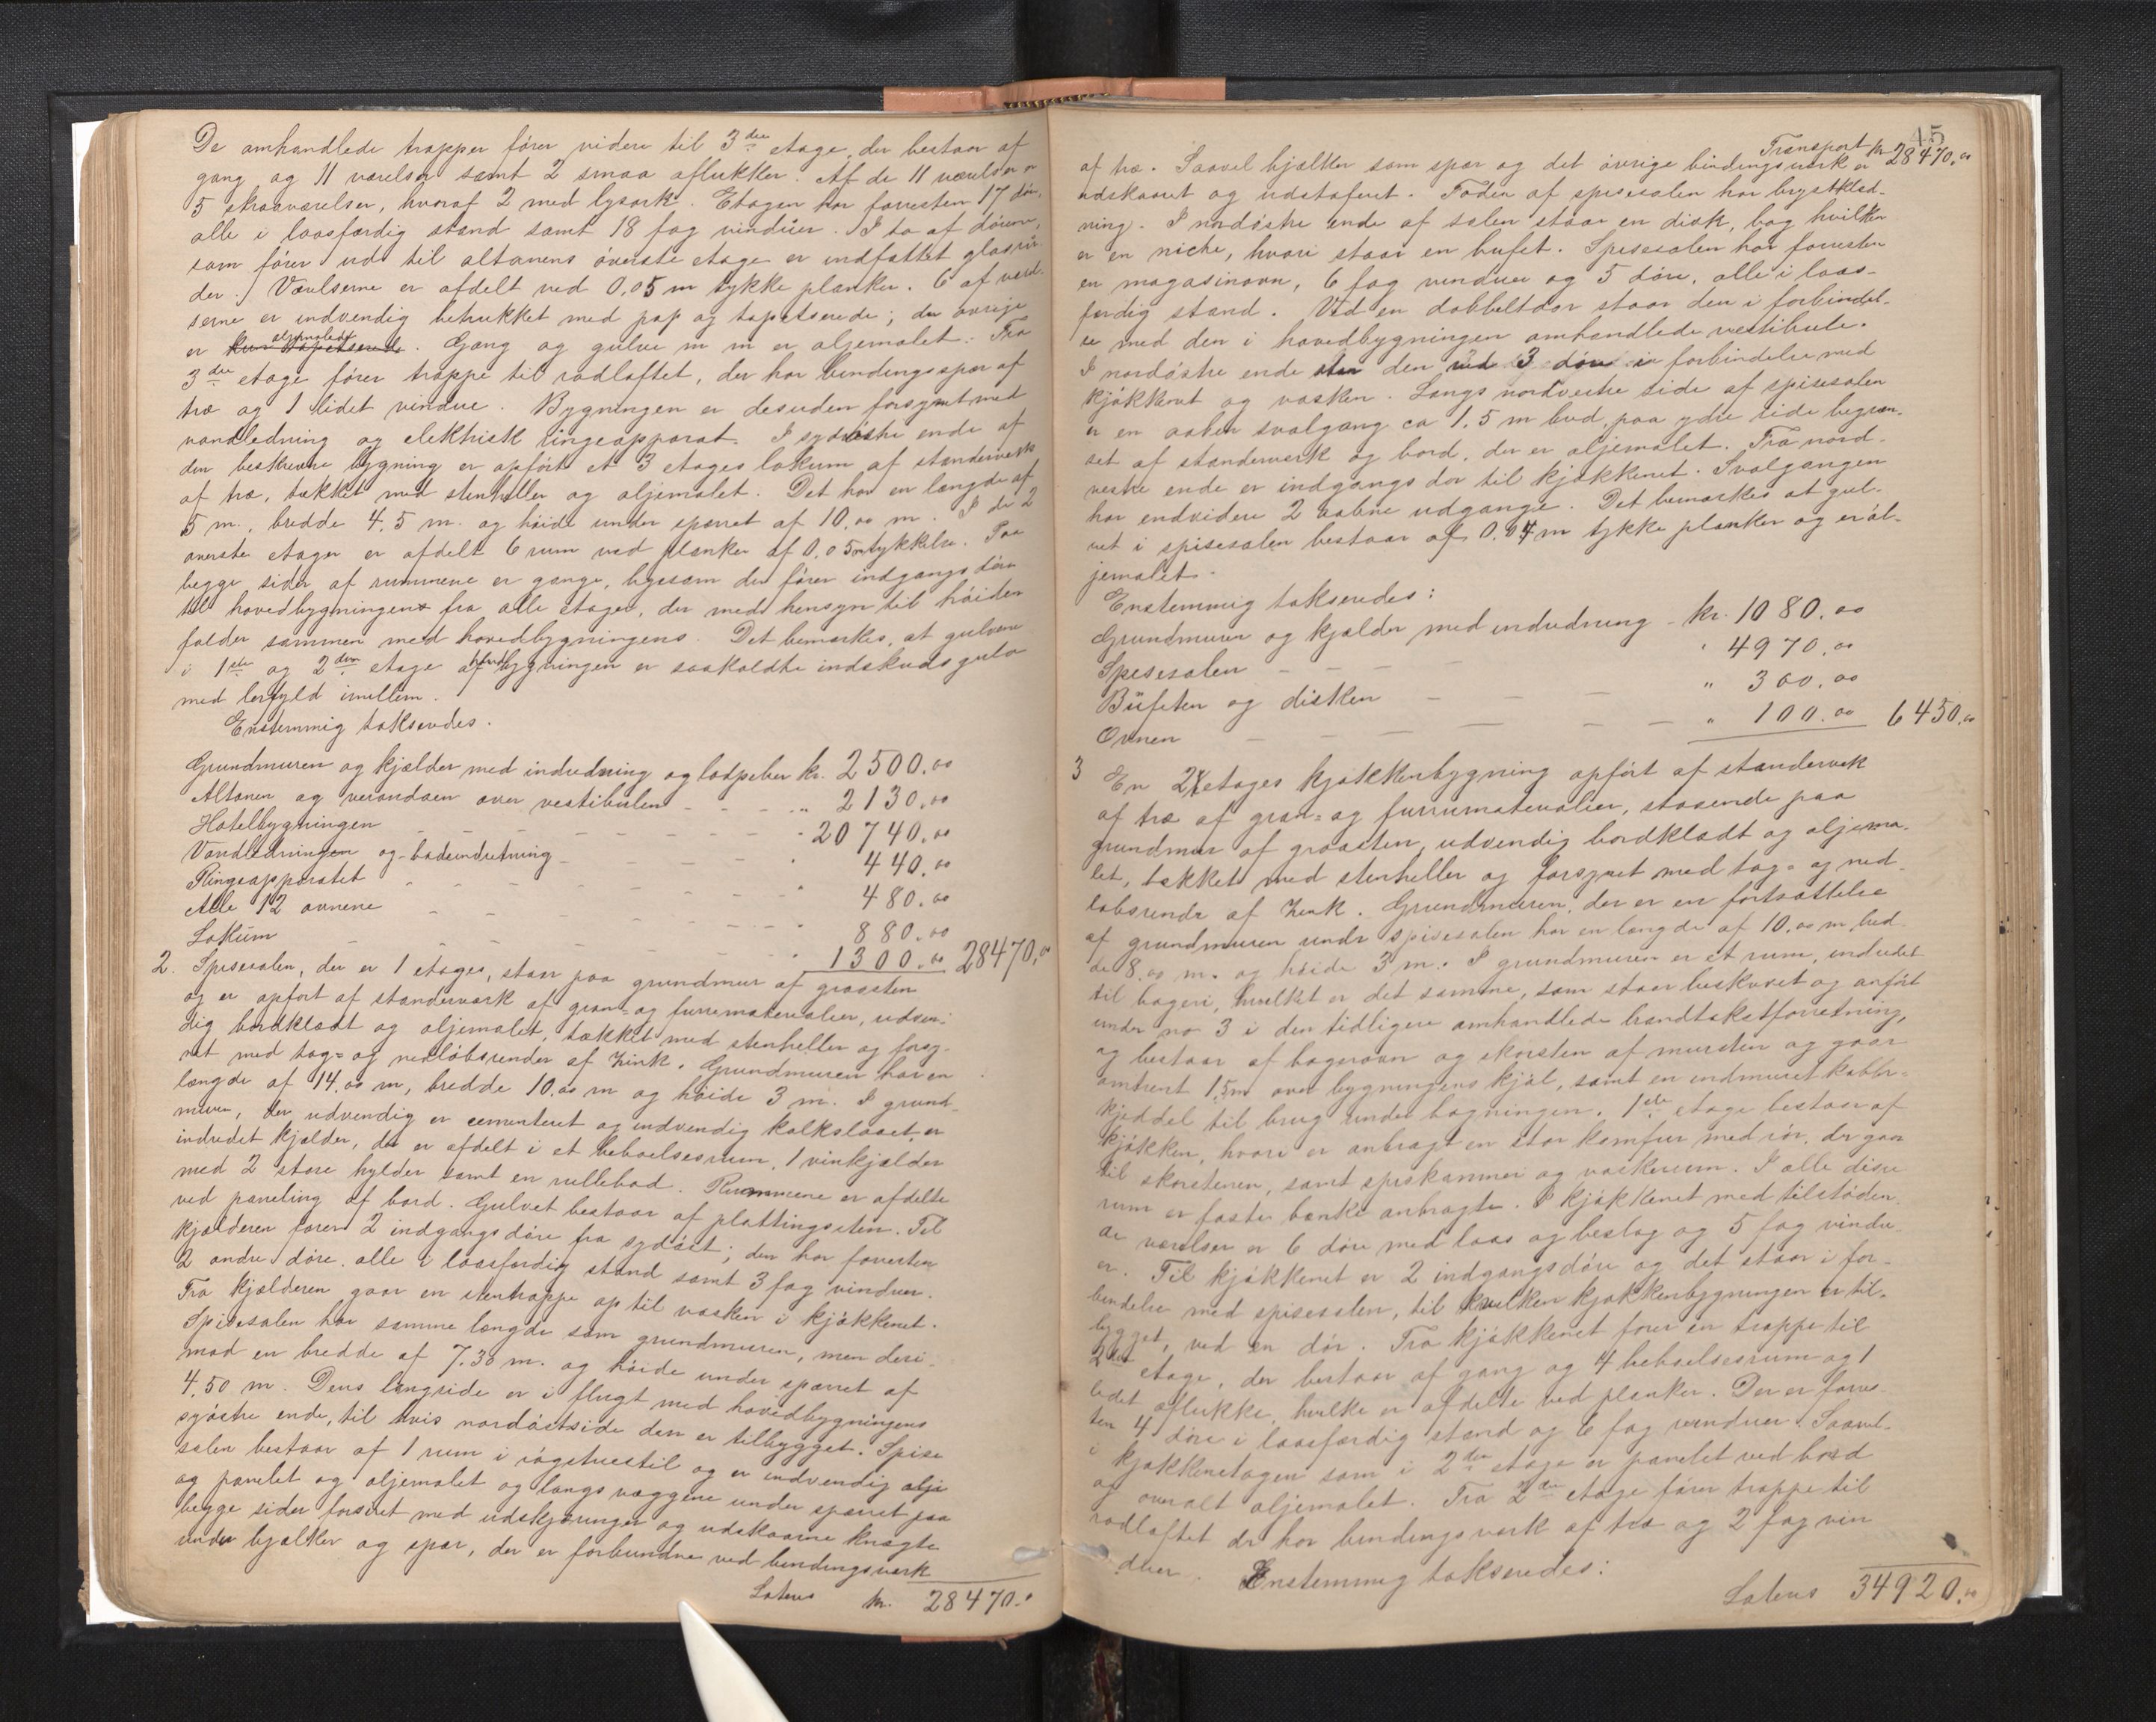 De omhandlede trapper fører videre til 3die etage, der bestaar af
gang og 11 værelser samt 2 smaa aflukker. Af de 11 værelser er
5 skraaværelser, hvoraf 2 med lysark. Etagen har forresten 17 døre,
alle i laasfærdig stand samt 18 fag vinduer. I to af dørene,
som fører ud til altanens øverste etage er indfattet glasru-
der. Værelserne er afdelt ved 0,05 m tykke planker. 6 af værel-
serne er indvendig betrukket med pap og tapetserede; de øvrige
er kun tapetserede oljemalede. Gang og gulve m m er oljemalet. Fra
3die etage fører trappe til rødloftet, der har bindingsspær af
træ og 1 lidet vindue. Bygningen er desuden forsynet med
vandledning og elektrisk ringeapparat. I sydøstre ende af
den beskrevne bygning er opført et 3 etages lokum af stenderverk
af træ, tækket med stenheller og oljemalet. Det har en længde af
5 m., bredde 4,5 m. og høide under sperret af 10,00 m. I de 2
øverste etager er afdelt 6 rum ved planker af 0,05 m tykkelse. Paa
begge sider af rummene er gange, ligesom der fører indgangsdøre
til hovedbygningen fra alle etager, der med hensyn til høiden
falder sammen med hovedbygningens. Det bemærkes, at gulvene
i 1ste og 2den etage af hovedbygningen er saakaldte indskudsgulv
med lerfyld imellem.
Enstemmig takseredes.
Grundmuren og kjælder med indredning og lødpeber kr. 2500.00
Altanen og verandaen over vestibulen - - - - " 2130.00
Hotelbygningen - - - - - - - - 20740.00
Vandledningen og badeindretning - - - - " 440.00
Ringeapparatet - - - - - - - " 480.00
Alle 12 ovnene - - - - - - - " 880.00
Lokum - - - - - - - " 1300.00 28470.00
2. Spisesalen, der er 1 etages, staar paa grundmur af graasten
og er opført af stenderværk af gran- og furrumaterialier, udven-
dig bordklædt og oljemalet, tækket med stenheller og forsy-
net med tag- og nedløbsrender af Zink. Grundmuren har en
længde af 14.00 m, bredde 10.00 m og høide 3 m. I grund-
muren, der udvendig er cementeret og indvendig kalkslaaet, er
indredet kjælder, der er afdelt i et beboelsesrum, 1 vinkjælder
med 2 store hylder samt en rullebod. Rummene er afdelte
ved paneling af bord. Gulvet bestaar af plattingsten. Til
kjælderen fører 2 indgangsdøre fra sydøst; den har forresten
2 andre døre, alle i laasfærdig stand samt 3 fag vinduer.
Fra kjælderen gaar en stentrappe op til vasken i kjøkkenet.
Spisesalen har samme længde som grundmuren, men deri-
mod en bredde af 7.30 m. og høide under sperret af
4,50 m. Dens langside er i flugt med hovedbygningens
syøstre ende, til hvis nordøstside den er tilbygget. Spise
salen bestaar af 1 rum i røgstuestil og er indvendig olje
og panelet og oljemalet og langs væggene under sperret paa
begge sider forsiret med udskjæringer og udskaarne knægte
under bjælker og spær, der er forbundne ved bindingsverk
Latus kr. 28470.00
45
Transport kr 28470.00
af træ. Saavel bjælker som spær og det øvrige bindingsværk er
udskaaret og udstafferet. Foden af spisesalen har brystklæd-
ning. I nordøstre ende af salen staar en disk, bag hvilken
er en niche, hvori staar en bufet. Spisesalen har forresten
en magasinovn, 6 fag vinduer og 5 døre, alle i laas-
færdig stand. Ved en dobbeltdør staar den i forbindel-
se med den i hovedbygningen omhandlede vestibule.
I nordøstre ende staar den ved 3 døre i forbindelse med
kjøkkenet og vasken. Langs nordvestre side af spisesalen
er en aaben svalgang ca 1,5 m bred, paa ydre side begræn-
set af stenderverk og bord, der er oljemalet. Fra nord-
vestre ende er indgangsdør til kjøkkenet. Svalgangen
har endvidere 2 aabne udgange. Det bemærkes at gul-
vet i spisesalen bestaar af 0.04 m tykke planker og er ol-
jemalet.
Enstemmig takseredes:
Grundmuren og kjælder med indredning - kr. 1080.00
Spisesalen - - - - " 4970.00
Büfeten og disken - - - " 300.00
Ovnen - - - - - " 100.00 6450.00
3 En 2 etages kjøkkenbygning opført af stenderverk
af træ af gran- og furrumaterialier, staaende paa
grundmur af graasten, udvendig bordklædt og oljema-
let, tækket med stenheller og forsynet med tag- og ned-
løbsrender af Zink. Grundmuren, der er en fortsættelse
af grundmuren under spisesalen har en længde af 10.00 m, bred-
de 8.00 m. og høide 3 m. I grundmuren er et rum, indredet
til bageri, hvilket er det samme, som staar beskrevet og anført
under no 3 i den tidligere omhandlede brandtakstforretning,
og bestaar af bagerovn og skorsten af mursten og gaar
omtrent 1.5 m over bygningens kjøl, samt en indmuret kobber-
kjeddel til brug under bagningen. 1ste etage bestaar af
kjøkken, hvori er anbragt en stor komfur med rør, der gaar
til skorstenen, samt spiskammer og vaskerum. I alle disse
rum er faste bænke anbragte. I kjøkkenet med tilstøden-
de værelser er 6 døre med laas og beslag og 5 fag vindu-
er. Til kjøkkenet er 2 indgangsdøre og det staar i for-
bindelse med spisesalen, til hvilken kjøkkenbygningen er til-
bygget, ved en dør. Fra kjøkkenet fører en trappe til
2den etage, der bestaar af gang og 4 beboelsesrum og 1
lidet aflukke, hvilke er afdelte ved planker. Der er forres-
ten 4 døre i laasfærdig stand og 6 fag vinduer. Saavel
i kjøkkenetagen som i 2den etage er panelet ved bord
og overalt oljemalet. Fra 2den etage fører trappe til
rødloftet der har bindingsverk af træ og 2 fag vin
duer. Enstemmig takseredes:
Latus 34920.00